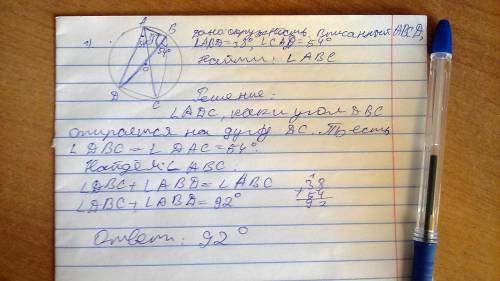 1)
A B
54°
O
D C
Дано: окружность. Вписанный ABCD,
∠ABD=38°, ∠CAD=54°
Найти: ∠ABC
Решение.
∠ADC, как и угол DBC
опирается на дугу DC. То есть
∠DBC = ∠DAC = 54°.
Найдем ∠ABC:
∠DBC + ∠ABD = ∠ABC
∠DBC + ∠ABD = 92°
38
+ 54
92
Ответ: 92°